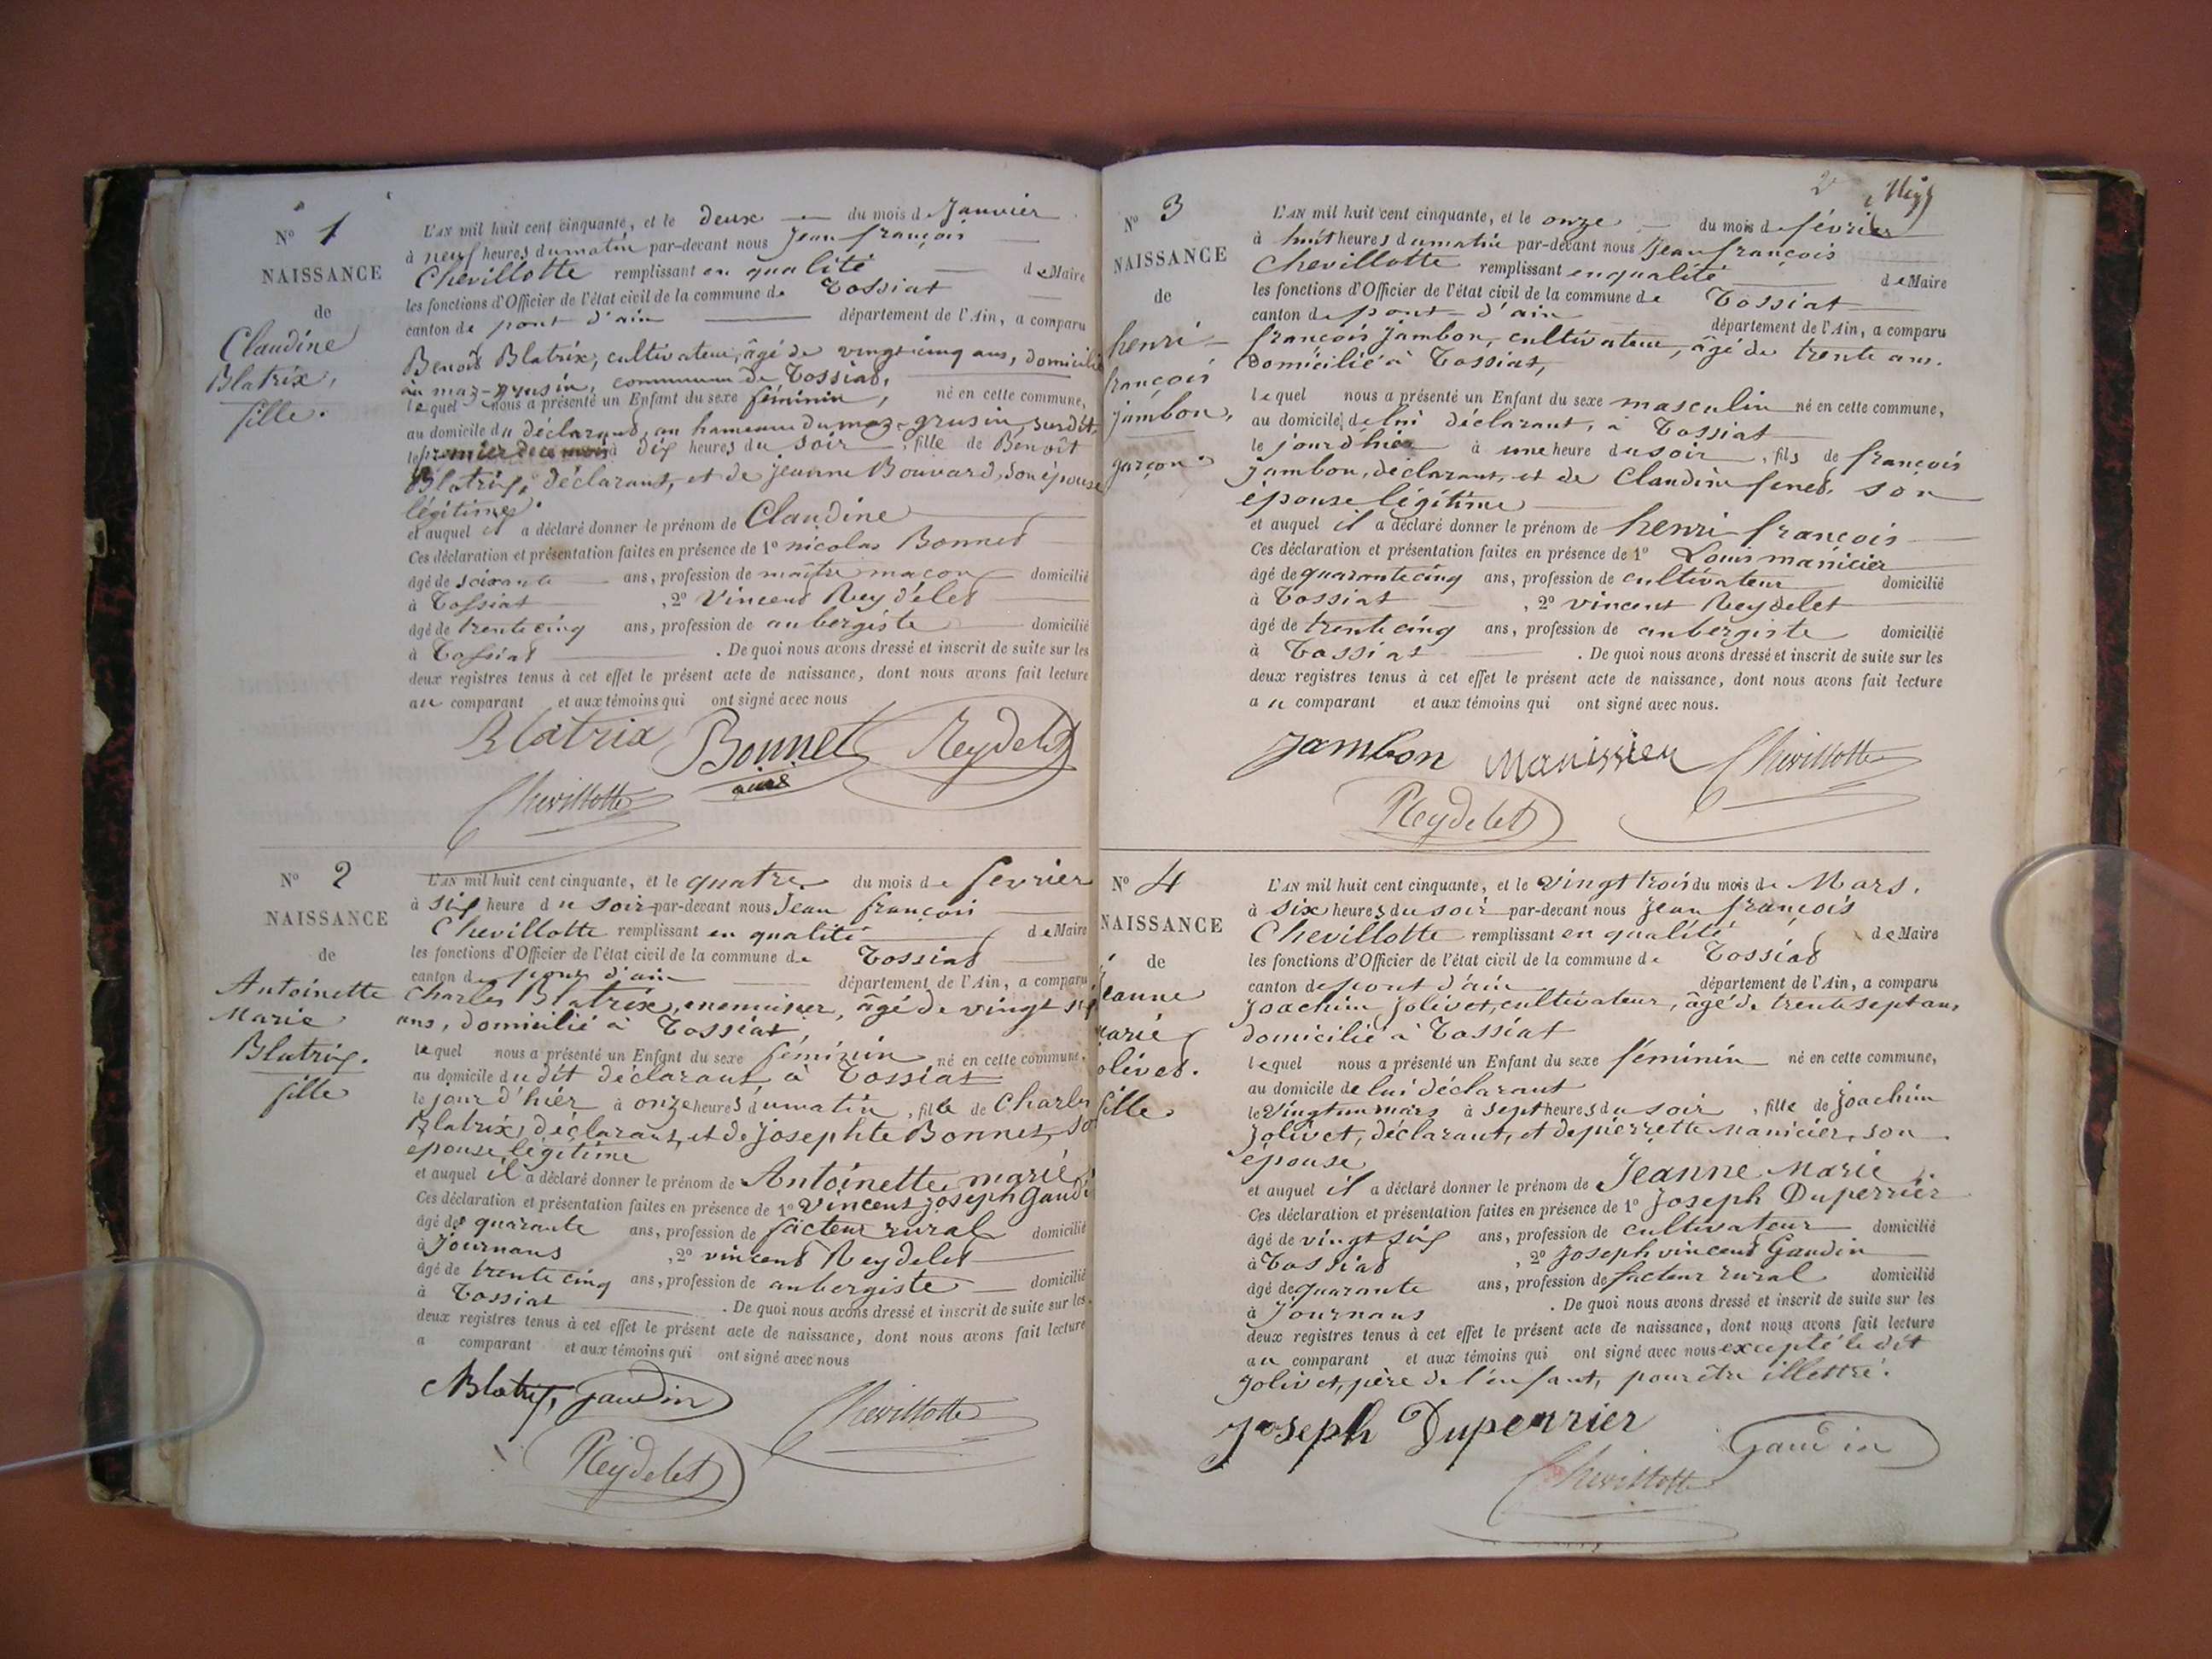 N° 1
NAISSANCE
de
Claudine
Blatrix,
fille.
L'AN mil huit cent cinquante, et le deux du mois de Janvier
à neuf heures du matin par-devant nous Jean françois
Chevillotte remplissant en qualité de Maire
les fonctions d'Officier de l'état civil de la commune de Tossiat
canton de pont d'ain département de l'Ain, a comparu
Benoit Blatrix, cultivateur, âgé de vingt cinq ans, domicilié
au maz-grusin, commune de Tossiat,
lequel nous a présenté un Enfant du sexe féminin, né en cette commune,
au domicile du déclarant, au hameau du maz-grusin, susdit,
le premier de ce mois à dix heures du soir, fille de Benoît
Blatrix, déclarant, et de jeanne Bouvard, son épouse
légitime.
et auquel il a déclaré donner le prénom de Claudine
Ces déclaration et présentation faites en présence de 1° nicolas Bonnet
âgé de soixante ans, profession de maître maçon domicilié
à Tossiat, 2° Vincent Reydelet
âgé de trente cinq ans, profession de aubergiste domicilié
à Tossiat. De quoi nous avons dressé et inscrit de suite sur les
deux registres tenus à cet effet le présent acte de naissance, dont nous avons fait lecture
au comparant et aux témoins qui ont signé avec nous
Blatrix Bonnet Reydelet
Chevillotte
N° 2
NAISSANCE
de
Antoinette
Marie
Blatrix.
fille
L'AN mil huit cent cinquante, et le quatre du mois de fevrier
à six heure du soir par-devant nous Jean françois
Chevillotte remplissant en qualité de Maire
les fonctions d'Officier de l'état civil de la commune de Tossiat
canton de pont d'ain département de l'Ain, a comparu
Charles Blatrix, menuisier, âgé de vingt six
ans, domicilié à Tossiat,
lequel nous a présenté un Enfant du sexe féminin né en cette commune,
au domicile dudit déclarant, à Tossiat
le jour d'hier à onze heures du matin, fille de Charles
Blatrix, déclarant, et de josephte Bonnet, son
épouse légitime
et auquel il a déclaré donner le prénom de Antoinette marie
Ces déclaration et présentation faites en présence de 1° Vincent joseph Gaudin
âgé de quarante ans, profession de facteur rural domicilié
à Journans, 2° vincent Reydelet
âgé de trente cinq ans, profession de aubergiste domicilié
à Tossiat. De quoi nous avons dressé et inscrit de suite sur les
deux registres tenus à cet effet le présent acte de naissance, dont nous avons fait lecture
a comparant et aux témoins qui ont signé avec nous
Blatrix gaudin Chevillotte
Reydelet
2
N° 3
NAISSANCE
de
henri
françois
jambon,
garçon.
L'AN mil huit cent cinquante, et le onze du mois de février
à huit heures du matin par-devant nous Jean françois
Chevillotte remplissant en qualité de Maire
les fonctions d'Officier de l'état civil de la commune de Tossiat
canton de pont-d'ain département de l'Ain, a comparu
françois jambon, cultivateur, âgé de trente ans.
domicilié à Tossiat,
lequel nous a présenté un Enfant du sexe masculin né en cette commune,
au domicile de lui déclarant, à Tossiat
le jour d'hier à une heure du soir, fils de françois
jambon, déclarant, et de Claudine son
épouse légitime
et auquel il a déclaré donner le prénom de henri françois
Ces déclaration et présentation faites en présence de 1° Louis manicier
âgé de quarante cinq ans, profession de cultivateur domicilié
à Tossiat, 2° vincent Reydelet
âgé de trente cinq ans, profession de aubergiste domicilié
à Tossiat. De quoi nous avons dressé et inscrit de suite sur les
deux registres tenus à cet effet le présent acte de naissance, dont nous avons fait lecture
au comparant et aux témoins qui ont signé avec nous.
Jambon Manissier Chevillotte
Reydelet
N° 4
NAISSANCE
de
Jeanne
marie
jolivet.
fille.
L'AN mil huit cent cinquante, et le vingt trois du mois de Mars,
à six heures du soir par-devant nous Jean françois
Chevillotte remplissant en qualité de Maire
les fonctions d'Officier de l'état civil de la commune de Tossiat
canton de pont d'ain département de l'Ain, a comparu
Joachim Jolivet, cultivateur, âgé de trente sept ans,
domicilié à Tossiat
lequel nous a présenté un Enfant du sexe féminin né en cette commune,
au domicile de lui déclarant
le vingt un mars à sept heures du soir, fille de Joachim
Jolivet, déclarant, et de pierrette manicier, son
épouse
et auquel il a déclaré donner le prénom de Jeanne Marie
Ces déclaration et présentation faites en présence de 1° Joseph Duperrier
âgé de vingt six ans, profession de cultivateur domicilié
à Tossiat, 2° Joseph vincent Gaudin
âgé de quarante ans, profession de facteur rural domicilié
à Journans. De quoi nous avons dressé et inscrit de suite sur les
deux registres tenus à cet effet le présent acte de naissance, dont nous avons fait lecture
au comparant et aux témoins qui ont signé avec nous excepté le dit
Jolivet, père de l'enfant, pour être illettré.
Joseph Duperrier Gaudin
Chevillotte